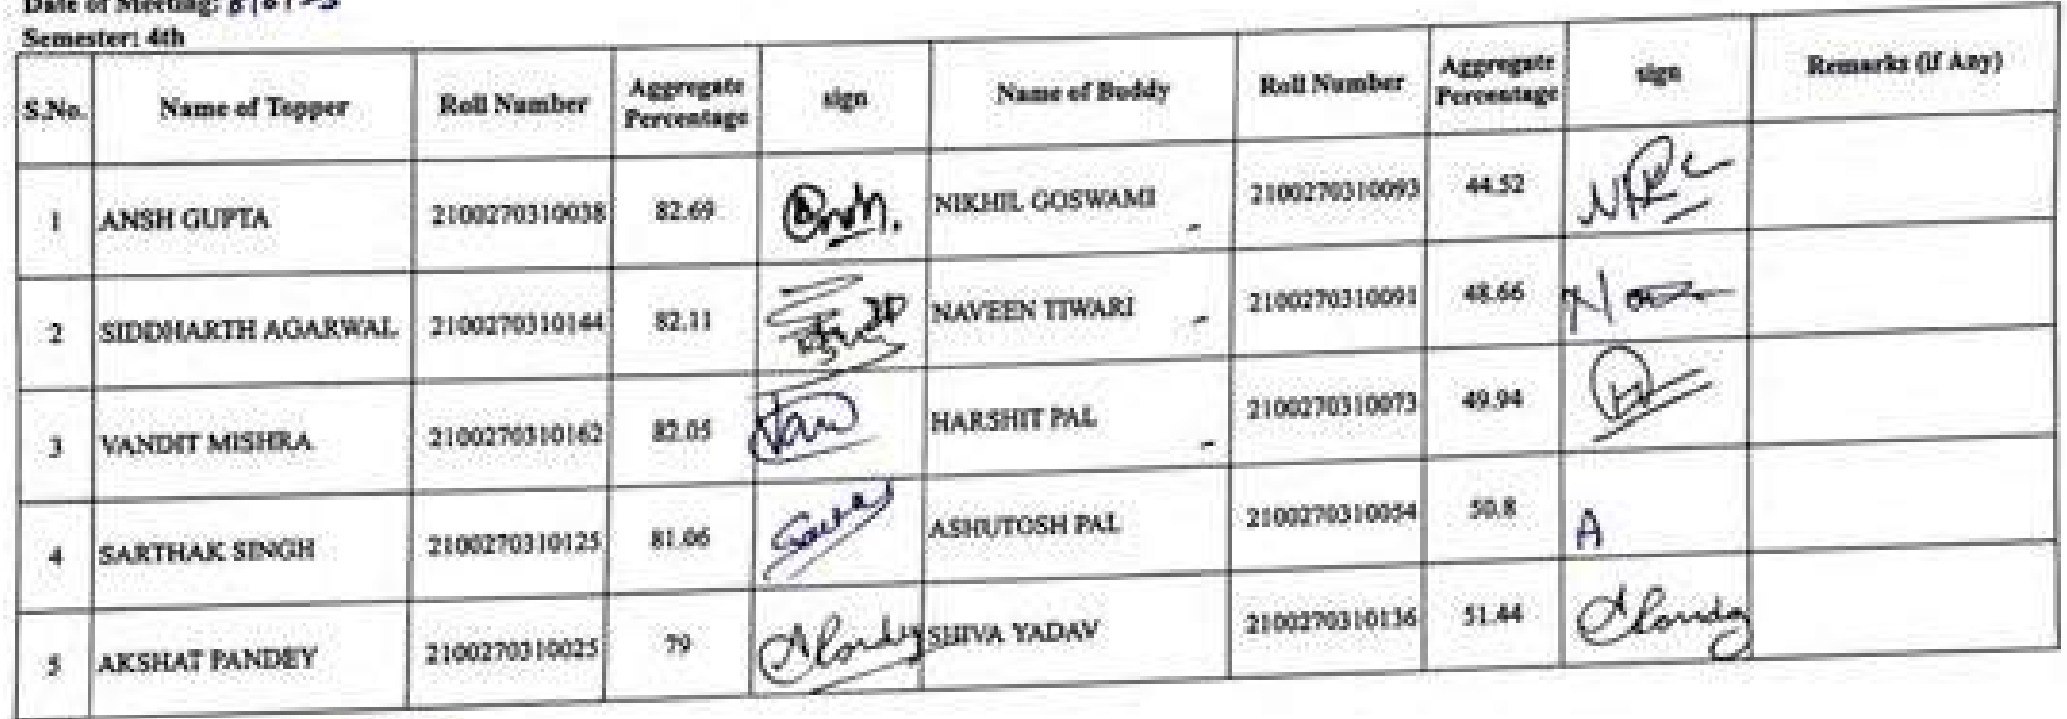 Date of Meeting:
Semester: 4th
S.No. Name of Topper Roll Number Aggregate Percentage sign Name of Buddy Roll Number Aggregate Percentage sign Remarks (if Any)
1 ANSH GUPTA 2100270310038 82.69 NIKHIL GOSWAMI 2100270310093 44.52
2 SIDDHARTH AGARWAL 2100270310144 82.11 NAVEEN TIWARI 2100270310091 48.66
3 VANDIT MISHRA 2100270310162 82.05 HARSHIT PAL 2100270310073 49.94
4 SARTHAK SINGH 2100270310125 81.06 ASHUTOSH PAL 2100270310054 50.8 A
5 AKSHAT PANDEY 2100270310025 79 SHIVA YADAV 2100270310136 51.44